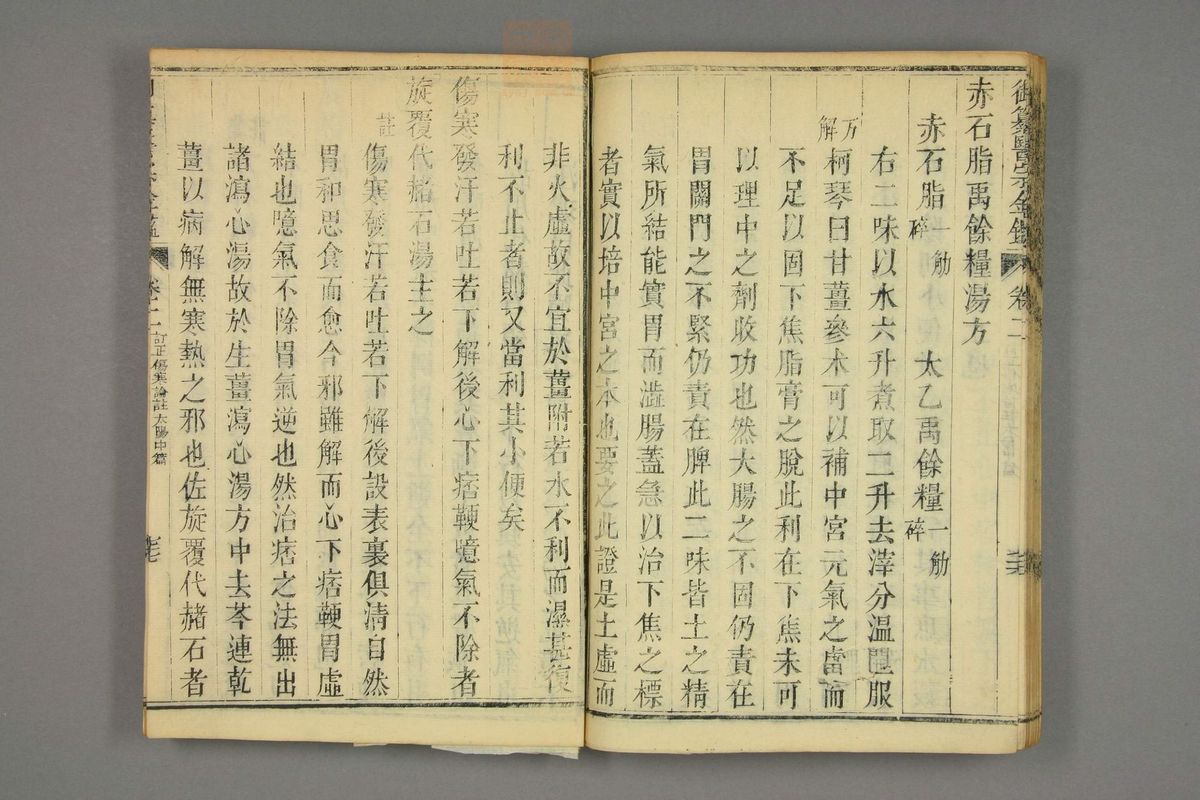 御纂醫宗金鑑 卷二
赤石脂禹餘糧湯方
赤石脂一觔碎 太乙禹餘糧一觔碎
右二味以水六升煮取二升去滓分溫三服
方解
柯琴曰甘薑參朮可以補中宮元氣之虛而
不足以固下焦脂膏之脫此利在下焦未可
以理中之劑收功也然大腸之不固仍責在
胃關門之不緊仍責在脾此二味皆土之精
氣所結能實胃而澁腸蓋急以治下焦之標
者實以培中宮之本也要之此證是土虛而
非火虛故不宜於薑附若水不利而濕甚復
利不止者則又當利其小便矣
傷寒發汗若吐若下解後心下痞鞕噫氣不除者
旋覆代赭石湯主之
註
傷寒發汗若吐若下解後設表裏俱清自然
胃和思食而愈今邪雖解而心下痞鞕胃虛
結也噫氣不除胃氣逆也然治痞之法無出
諸瀉心湯故於生薑瀉心湯方中去芩連乾
薑以病解無寒熱之邪也佐旋覆代赭石者
卷二 訂正傷寒論註太陽中篇